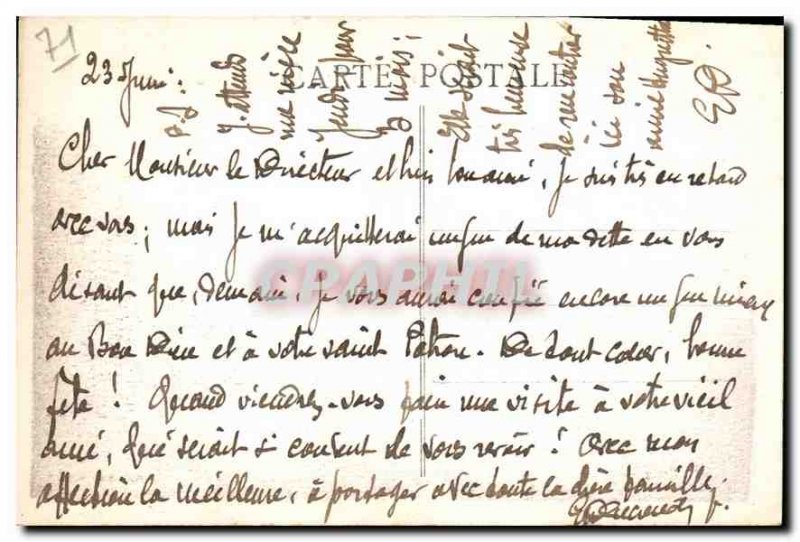 71
23 Juin.
CARTE POSTALE
Cher Monsieur le Directeur et bien bon ami, Je suis très en retard
avec vous; mais Je m'acquitterai un peu de ma dette en vous
disant que, demain, je vous aurai confié encore un peu mieux
au Bon Dieu et à votre saint Patron. De tout cœur, bonne
fête! Quand viendrez-vous faire une visite à votre vieil
ami, qui serait si content de vous revoir! Avec mon
affection la meilleure, à partager avec toute la chère famille.
P.S. J'attends
ma nièce
Jeudi pour
2 mois;
Elle serait
très heureuse
de montrer
ici son
amie Huguette
ED.
CPAPHIL